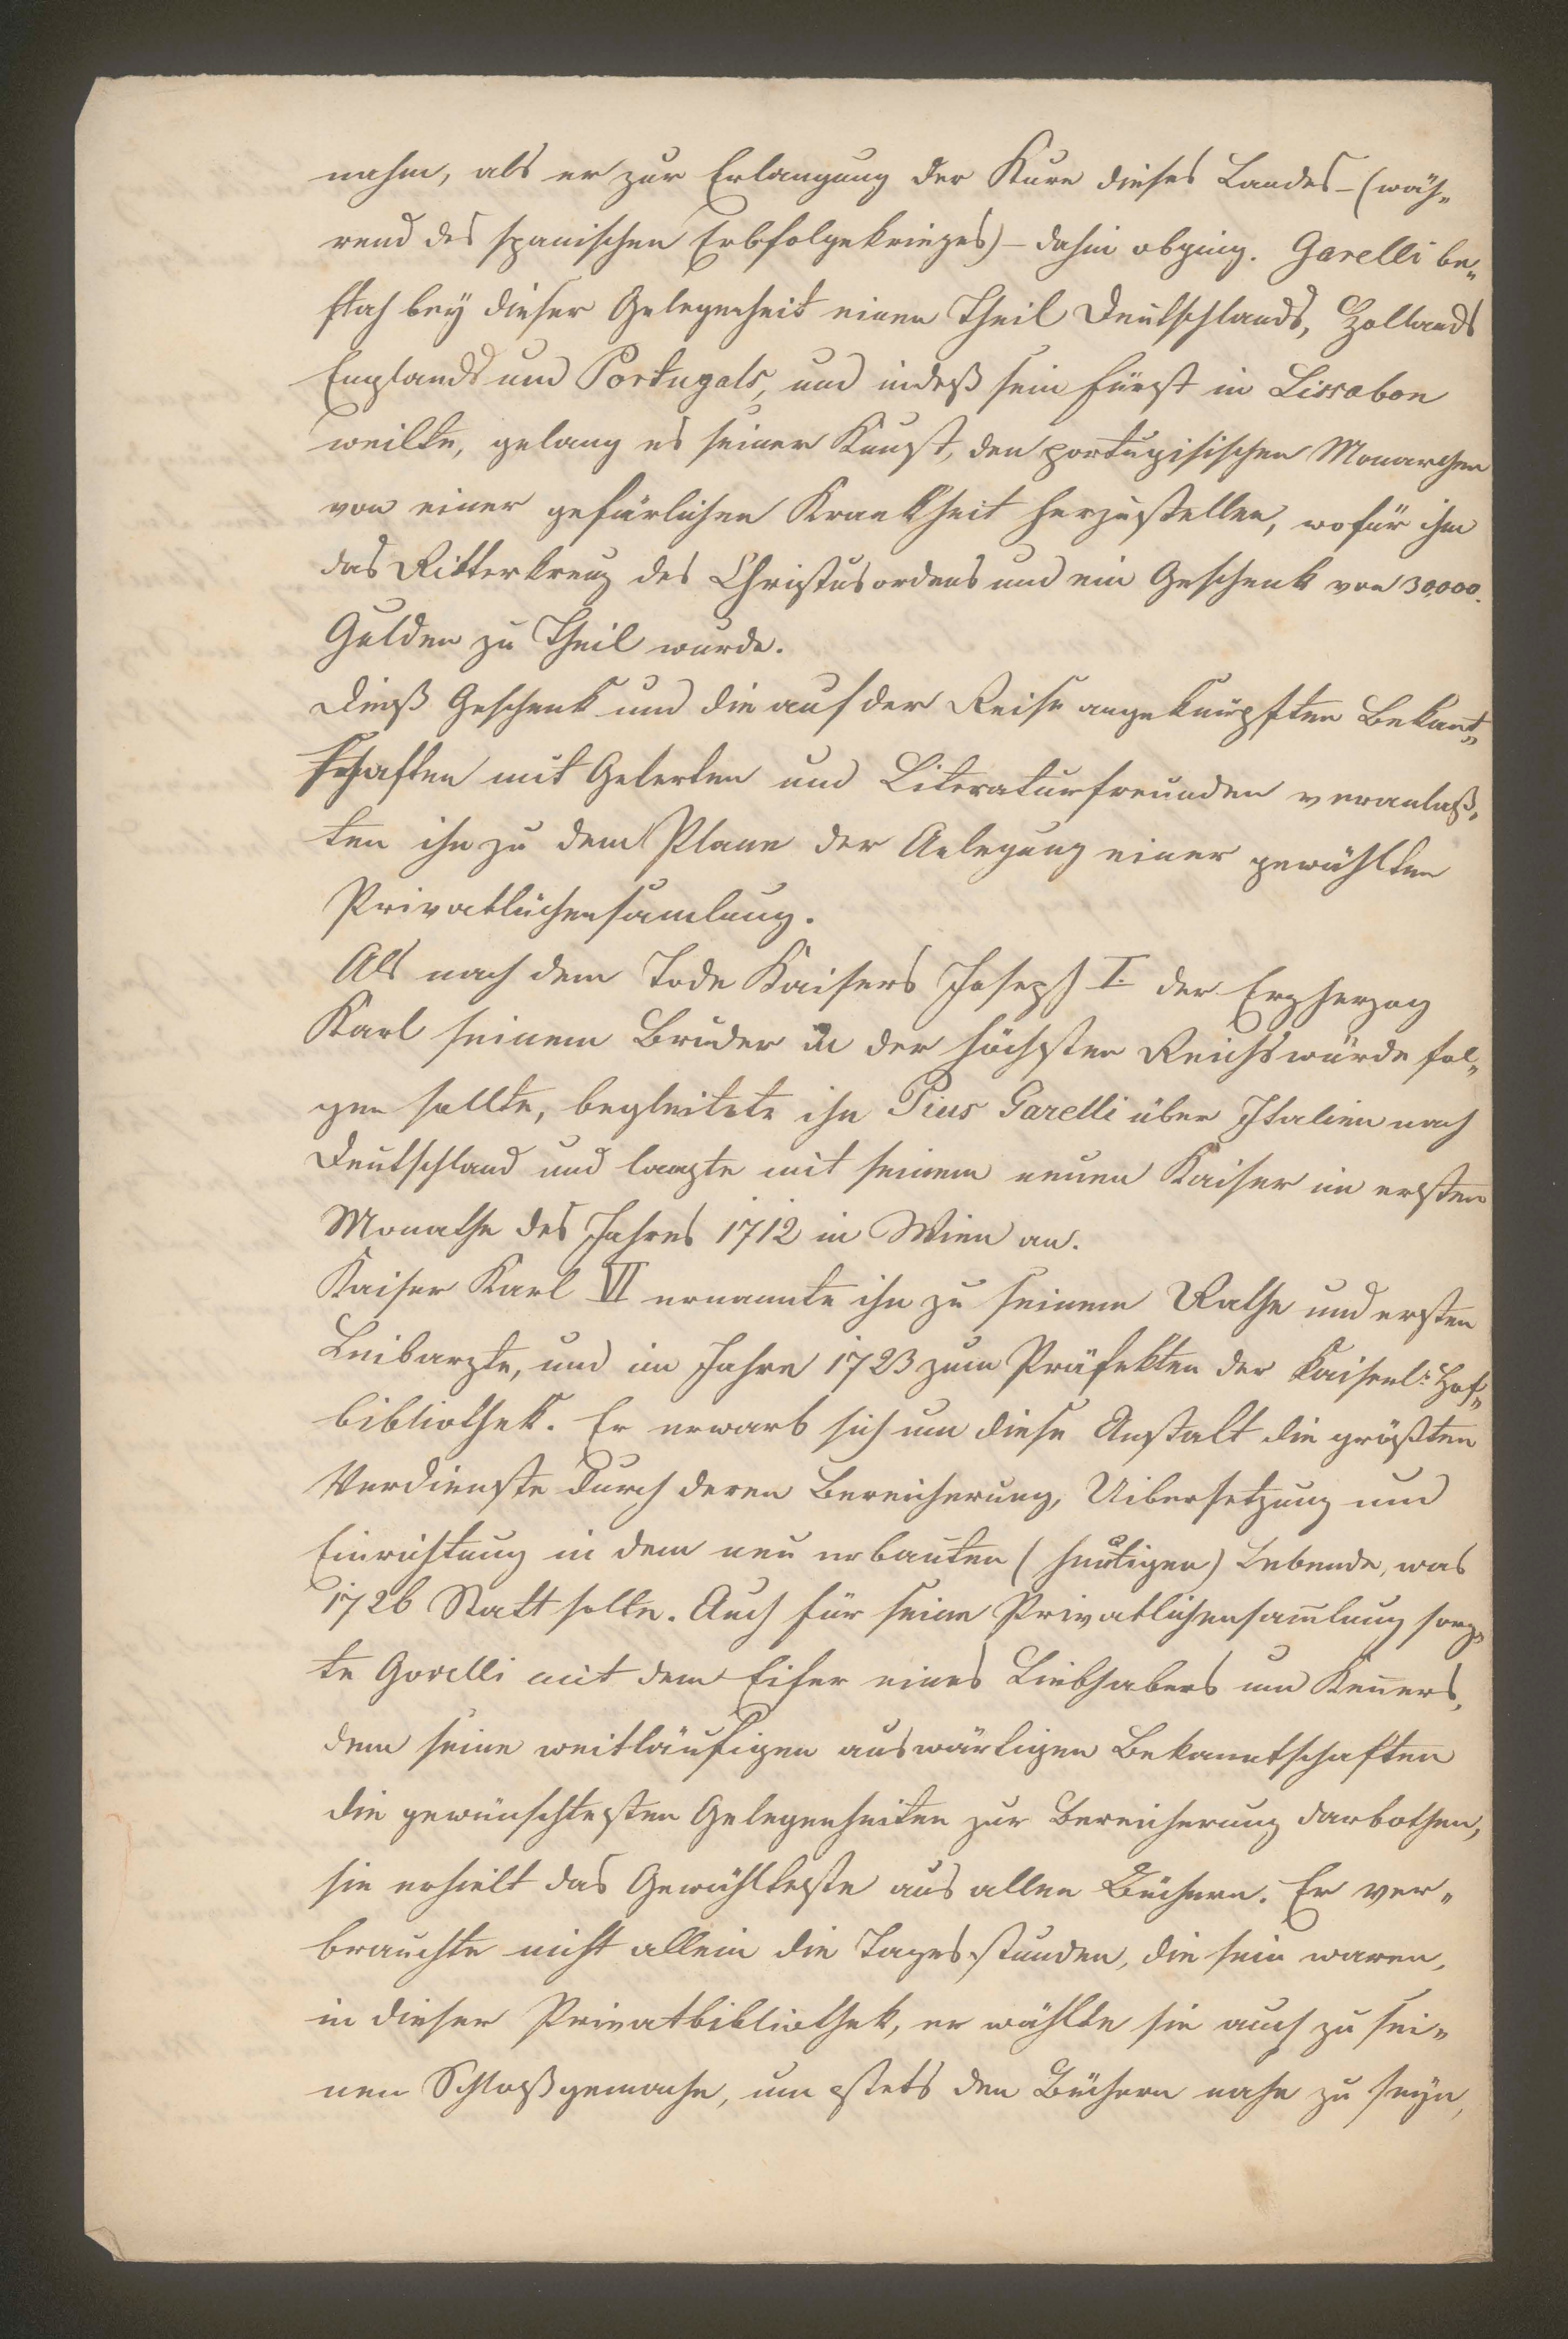 nahm, als er zur Erlangung der Kure dieses Landes – (wäh„
rend des spanischen Erbfolgekrieges) – dahin abging. Garelli be„
sah bey dieser Gelegenheit einen Theil Deutschlands, Hollands
Englands und Portugals, und indeß sein Fürst in Lissabon
weilte, gelang es seiner Kunst, den portugisischen Monarchen
von einer gefärlichen Krankheit herzustellen, wofür ihm
das Ritterkreuz des Christusordens und ein Geschenk von 30,000.
Gulden zu Theil wurde.
Dieß Geschenk und die auf der Reise angeknüpften Bekant„
schaften mit Gelerten und Literaturfreunden veranlaß„
ten ihn zu dem Plane der Anlegung einer gewählten
Privatbüchersamlung.
Als nach dem Tode Kaisers Joseph I. der Erzherzog
Karl seinem Bruder in der höchsten Reichswürde fol„
gen sollte, begleitete ihn Pius Garelli über Italien nach
Deutschland und langte mit seinem neuen Kaiser im ersten
Monathe des Jahres 1712 in Wien an.
Kaiser Karl VI ernannte ihn zu seinem Rathe und ersten
Leibarzte, und im Jahre 1723 zum Präfekten der kaiserl: Hof„
bibliothek. Er erwarb sich um diese Anstalt die größten
Verdienste durch deren Bereicherung, Uibersetzung und
Einrichtung in dem neu erbauten (heutigen) Gebäude, was
1726 Statt hatte. Auch für seine Privatbüchersam̄lung sorg„
te Garelli mit dem Eifer eines Liebhabers und Ken̄ers,
dem seine weitläufigen auswärtigen Bekanntschaften
die gewünschtesten Gelegenheiten zur Bereicherung darbothen,
sie erhielt das Gewählteste aus allen Büchern. Er ver„
brauchte nicht allein die Tagesstunden, die sein waren,
in dieser Privatbibliothek, er wählte sie auch zu sei„
nen Schlafgemache, um stets den Büchern nahe zu seyn,